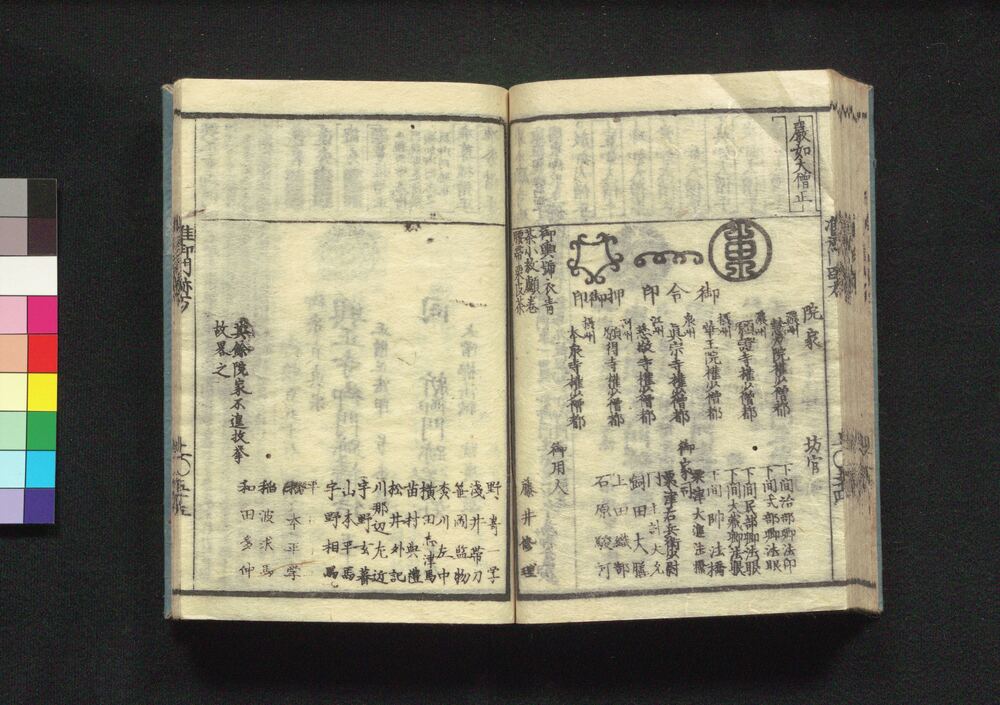 嚴如大僧正
御令印
押御印
御輿舁衣青
院家
慧光院權少僧都
顯證寺權少僧都
攝州
華王院權少僧都
泉州
眞宗寺權少僧都
江州
慈敬寺權少僧都
河州
願得寺權少僧都
攝州
本泉寺權少僧都
坊官
下間治部卿法印
下間式部卿法眼
下間民部卿法眼
下間大藏卿法眼
下間帥法橋
御家司
粟津大進法橋
粟津右兵衛少尉
飼田大膳
上田織部
石原駿河
御用人
藤井修理
野嵜一学
淺井帶刀
笹岡監物
炗川左中
横田志津馬
苗村與禮
松井外記
川那辺左近
宇野玄蕃
山本平馬
宇野相馬
松本平学
稲波求馬
和田多仲
其餘院家不遑枚挙
故畧之
准御門跡方